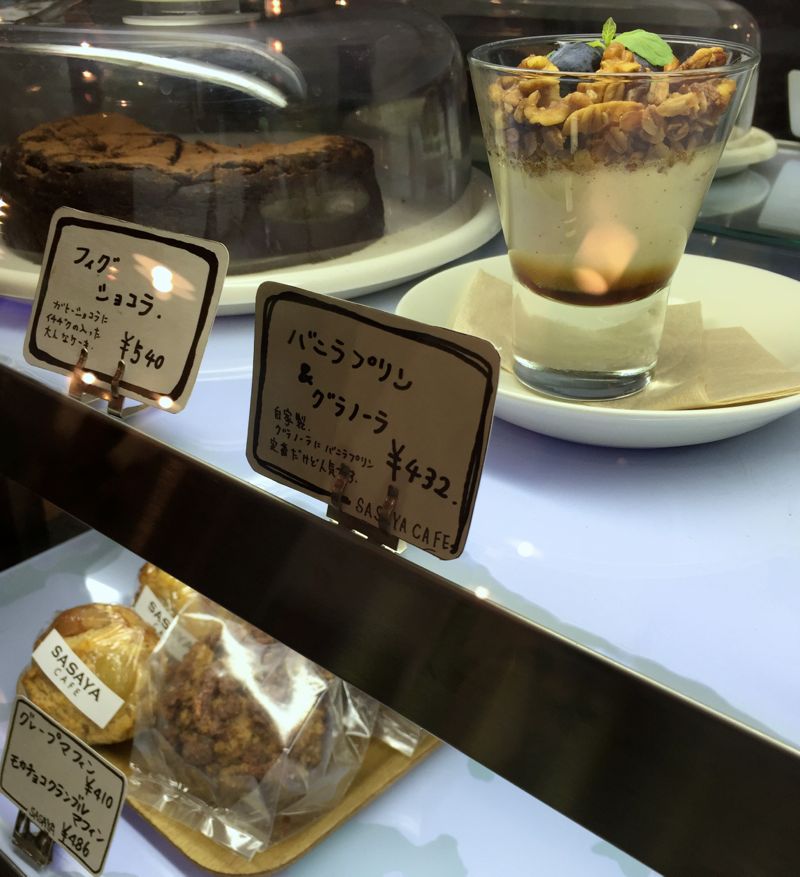 フィグ
ショコラ.
ガトーショコラに
イチヂクの入った
大人なケーキ.
¥540
バニラプリン
&
グラノーラ
自家製.
グラノーラにバニラプリン
定番だけど人気
¥432.
SASAYA CAFE
SASAYA
CAFE
SAS
グレープマフィン
¥410
モカチョコクランブル
マフィン
SASAYA ¥486